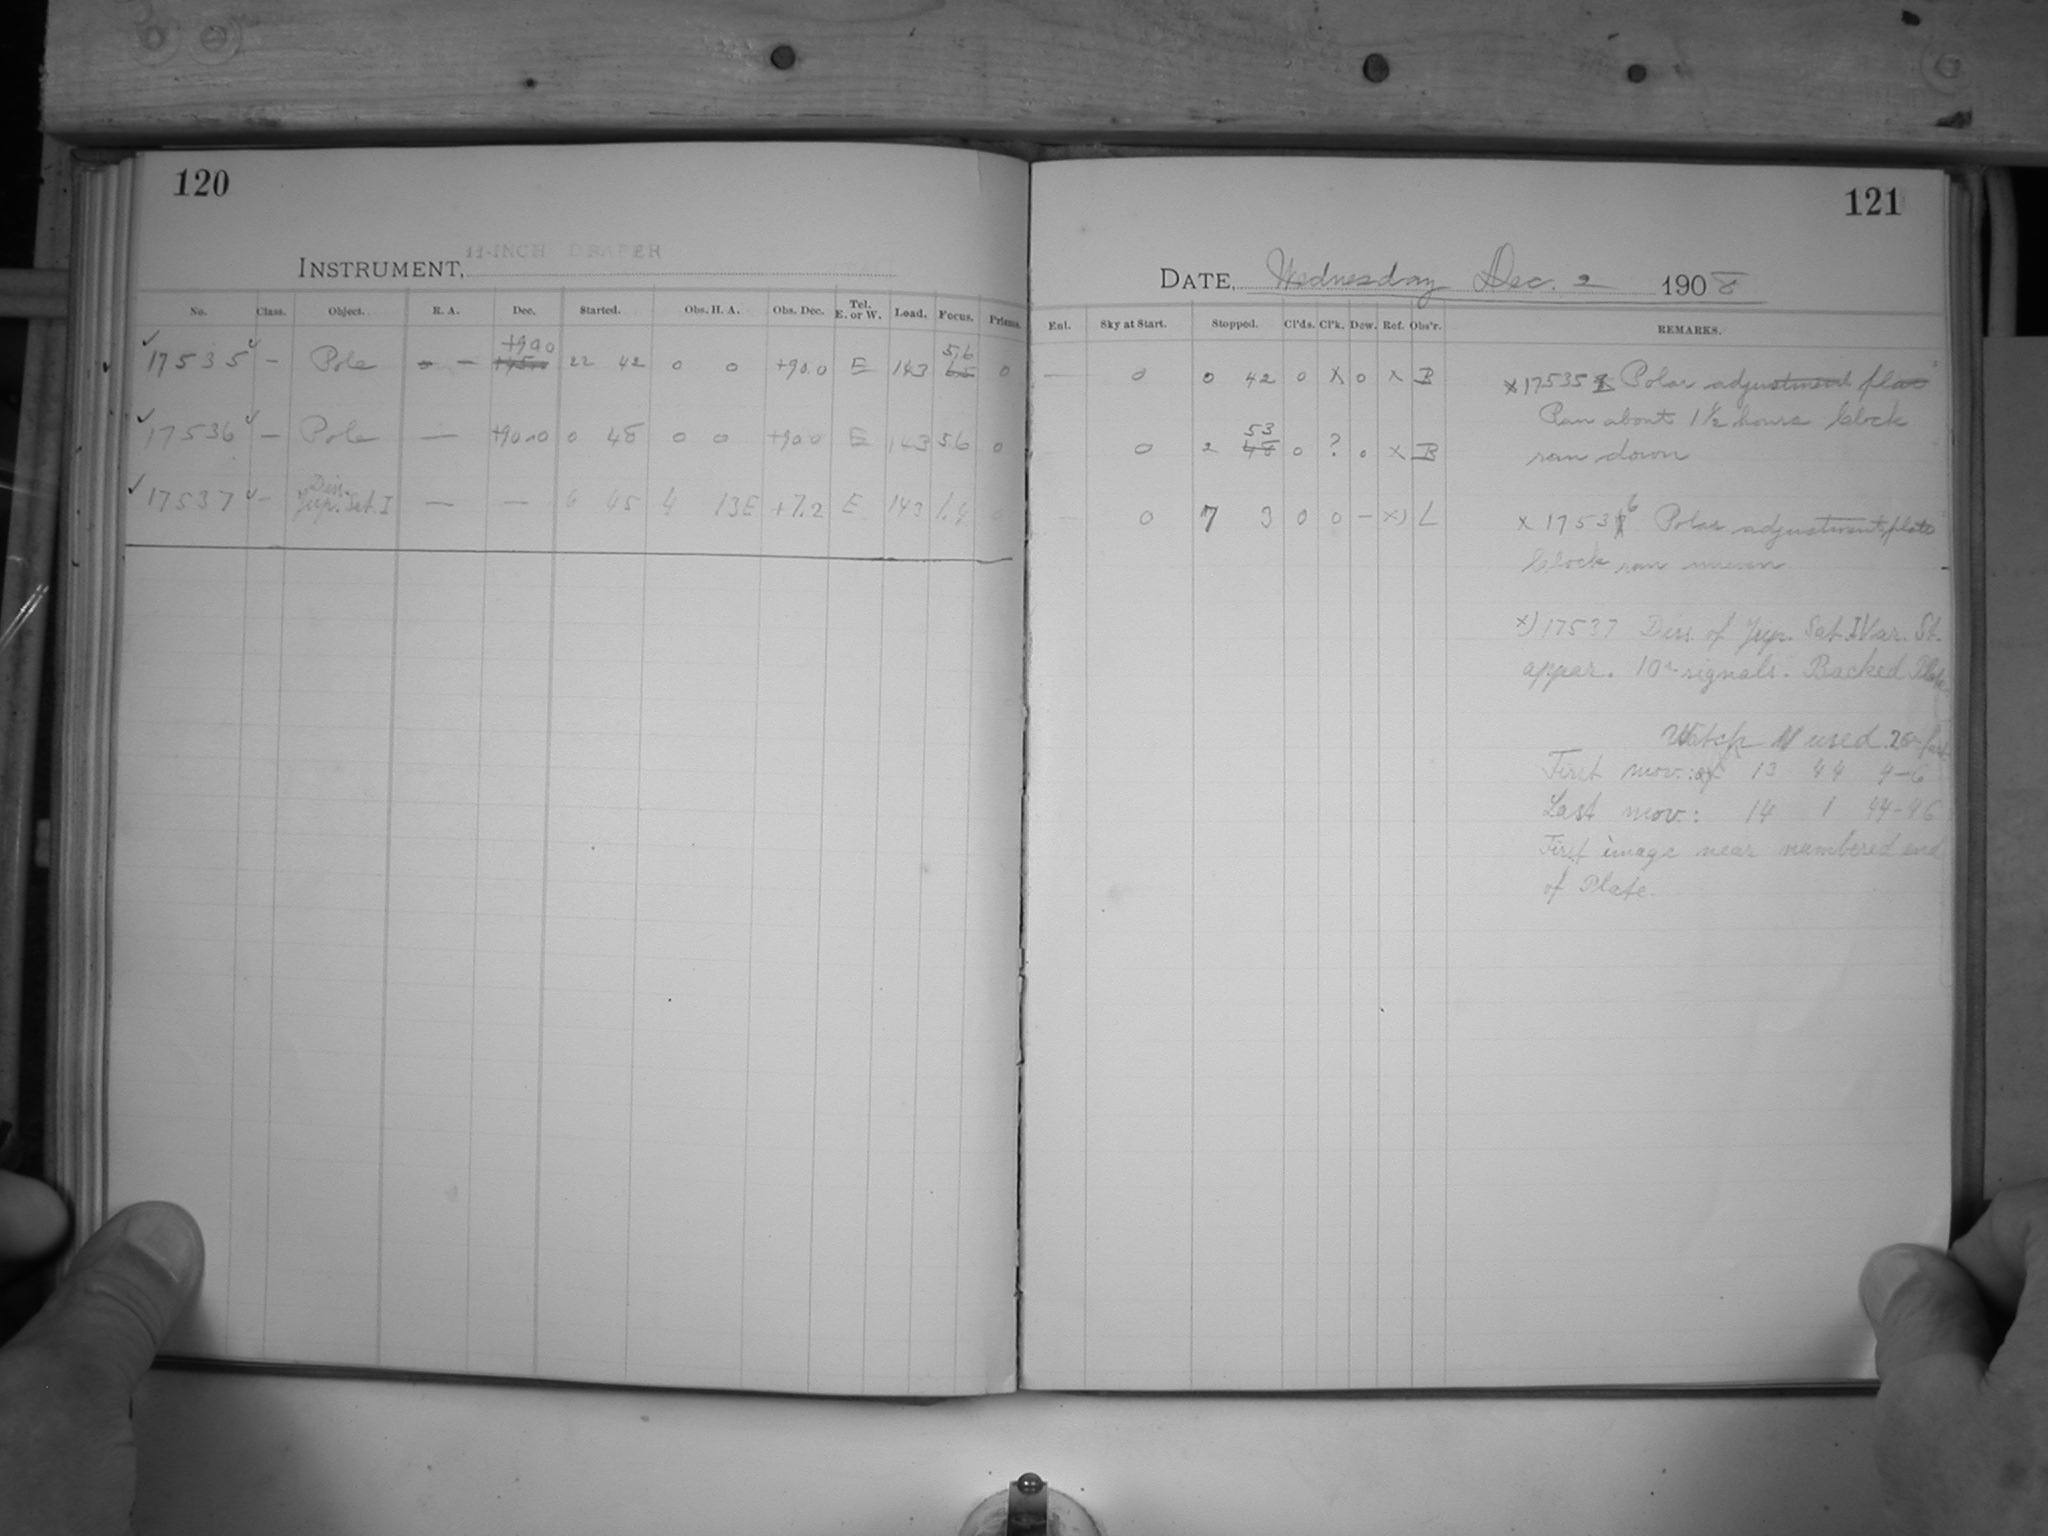 120
INSTRUMENT, 11-INCH DRAPER
No. Class. Object. R. A. Dec. Started. Obs. H. A. Obs. Dec. Tel. E. or W. Load. Focus. Prisms.
17535 — Pole — +90.0 22 42 0 0 +90.0 E 143 5.6 0
17536 — Pole — +90.0 0 48 0 0 +90.0 E 143 5.6 0
17537 — Dis. Jup. Sat. I — — 6 45 4 13E +7.2 E 143
121
DATE, Wednesday Dec. 2 1908
Enl. Sky at Start. Stopped. Cl'ds. Cl'k. Dew. Ref. Obs'r. REMARKS.
— 0 0 42 0 X 0 X B
0 2 53 0 ? 0 X B
— 0 7 3 0 0 — x) L
x 17535 Polar adjustment plate
Ran about 1½ hours Clock
ran down
x 17536 Polar adjustment plate
Clock ran uneven
x) 17537 Dis. of Jup. Sat I Var. St.
appar. 10 signals. Backed Plate
Watch used
First mov.: 13 44 4-6
Last mov.: 14 1 44-46
First image near numbered end
of Plate.